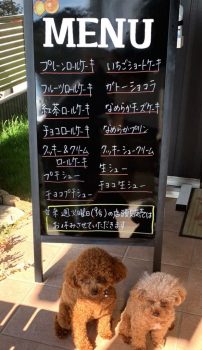 MENU
プレーンロールケーキ いちごショートケーキ
フルーツロールケーキ ガトーショコラ
紅茶ロールケーキ なめらかチーズケーキ
チョコロールケーキ なめらかプリン
クッキー&クリーム クッキーシュークリーム
ロールケーキ 生シュー
プチシュー チョコ生シュー
チョコプチシュー
お休みさせていただきます